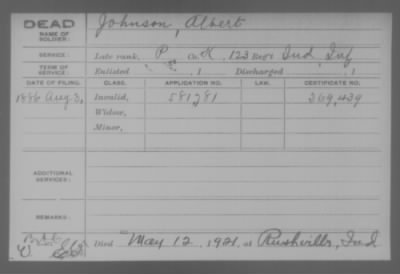 DEAD
NAME OF SOLDIER: Johnson, Albert
SERVICE: Late rank, P Co. K, 123 Reg't Ind Inf
TERM OF SERVICE: Enlisted , 1 Discharged , 1
DATE OF FILING. CLASS. APPLICATION NO. LAW. CERTIFICATE NO.
1886 Aug 3, Invalid, 581781 369,439
Widow,
Minor,
ADDITIONAL SERVICES:
REMARKS:
Died May 12, 1921, at Rushville, Ind